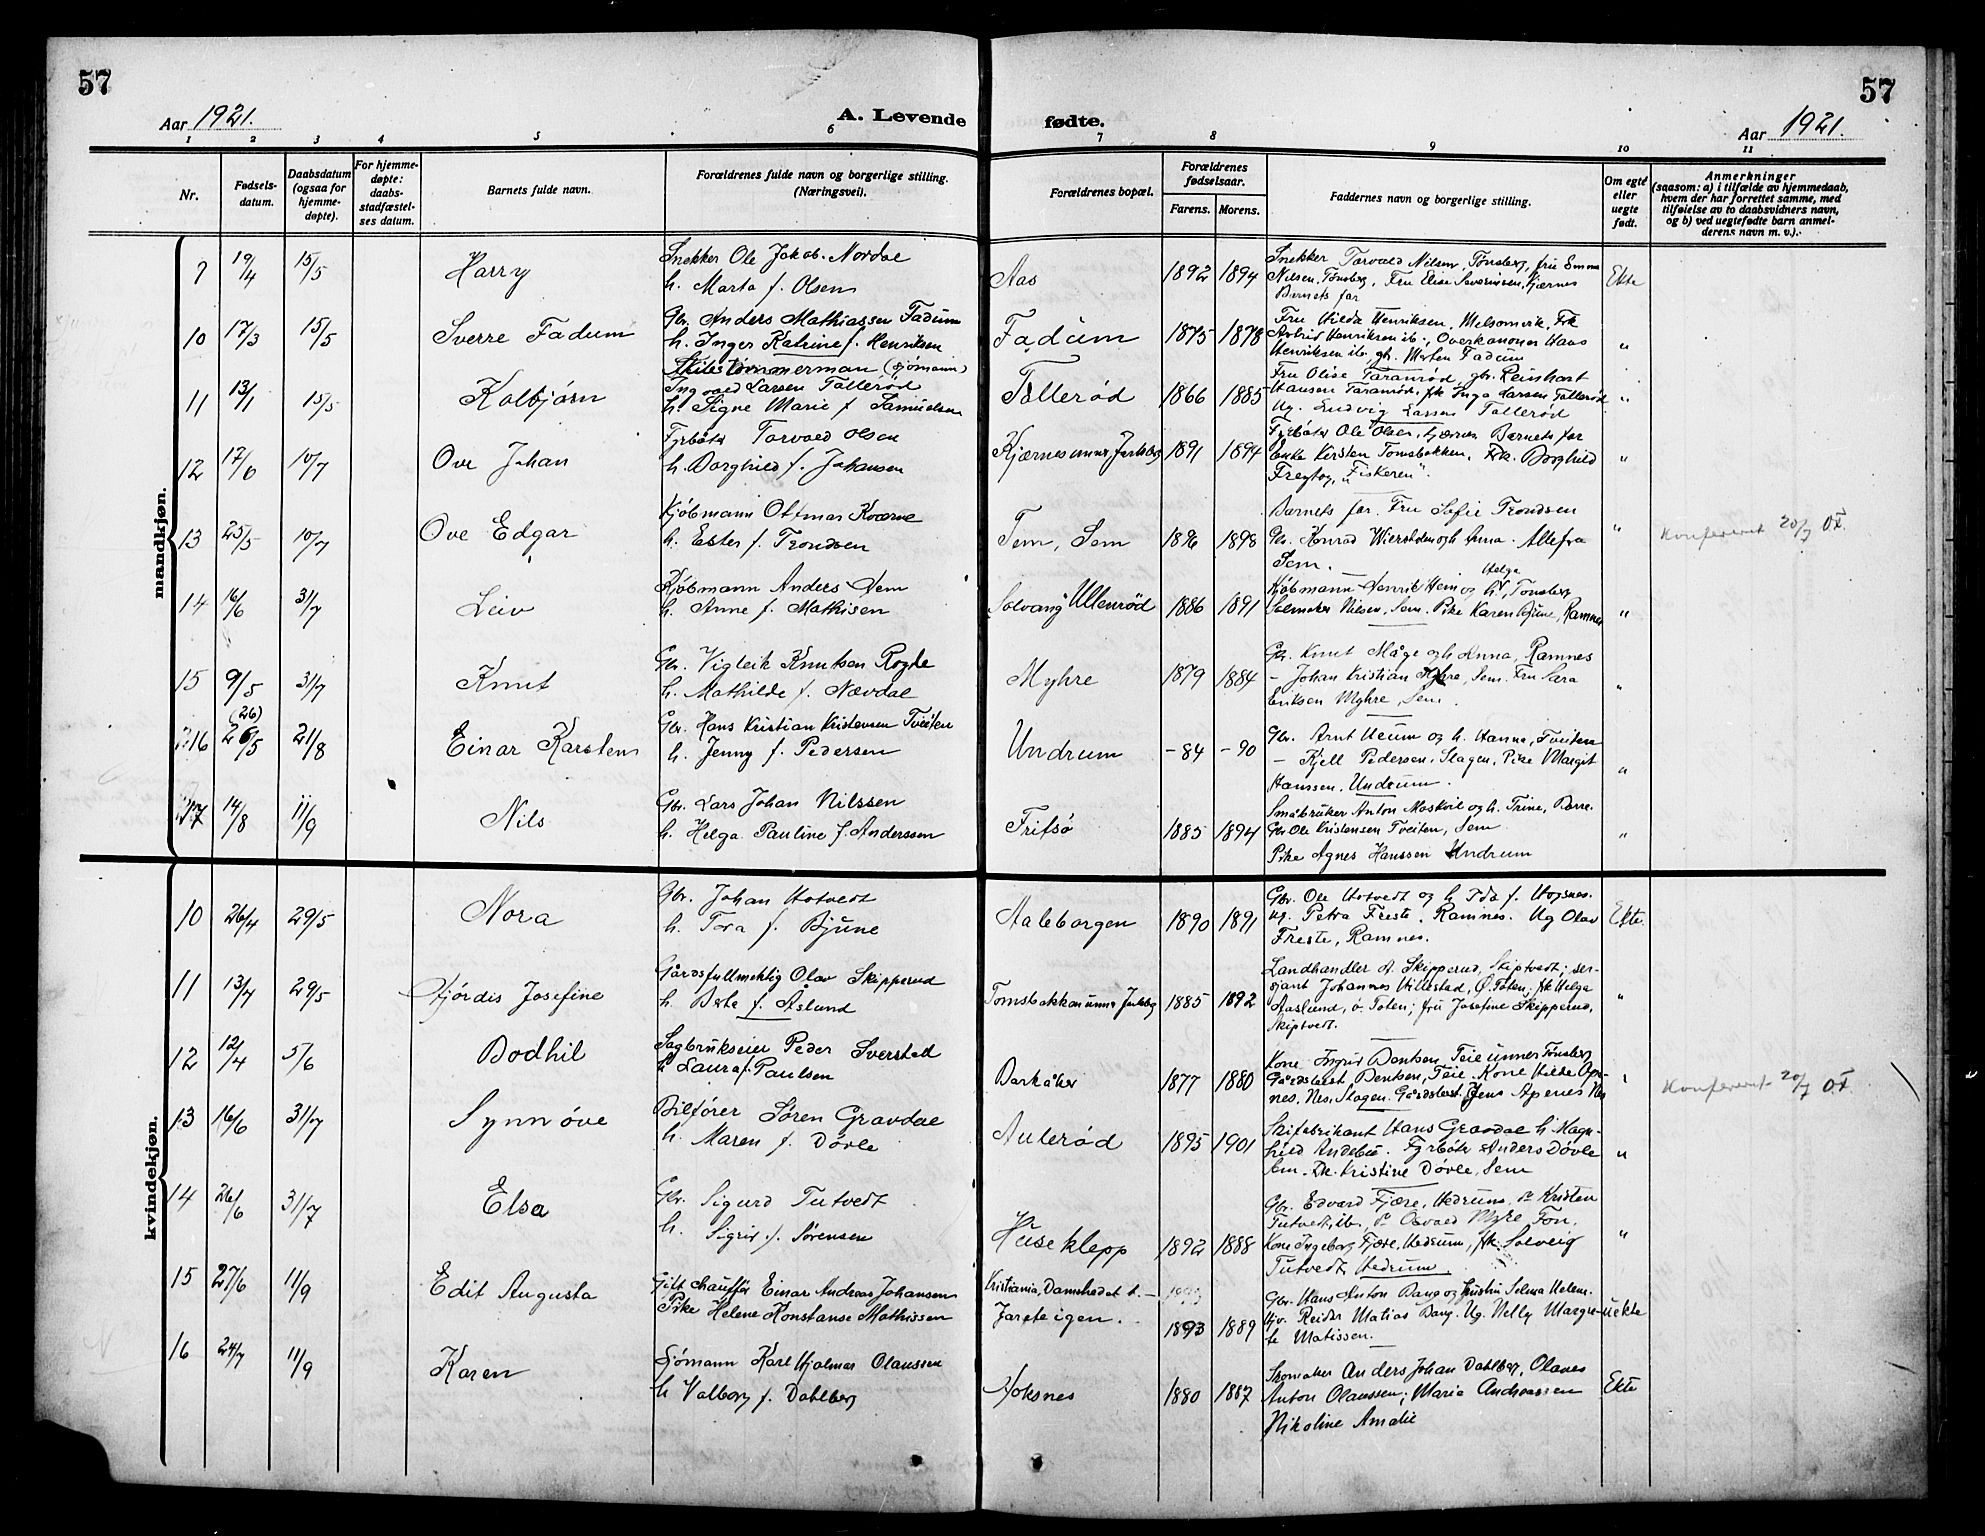 57
57
Aar 1921.
A. Levende
fødte.
Aar 1921.
1 2 3 4 5 6 7 8 9 10 11
Nr.
Fødsels-
datum.
Daabsdatum
(ogsaa for
hjemme-
døpte).
For hjemme-
døpte:
daabs-
stadfæstel-
ses datum.
Barnets fulde navn.
Forældrenes fulde navn og borgerlige stilling.
(Næringsvei).
Forældrenes bopæl.
Forældrenes
fødselsaar.
Farens. Morens.
Faddernes navn og borgerlige stilling.
Om egte
eller
uegte
født.
Anmerkninger
(saasom: a) i tilfælde av hjemmedaab,
hvem der har forrettet samme, med
tilføielse av to daabsvidners navn,
og b) ved uegtefødte barn anmel-
derens navn m. v.).
mandkjøn.
9 19/4 15/5 Harry
Snekker Ole Jakob Nordal
h. Marta f. Olsen
Aas 1892 1894
Snekker Torvald Nilsen, Tønsberg, fru Emma
Nilsen, Tønsberg, Fru Elise Severinsen, Kjærnes
Barnets far
Ekte
10 17/3 15/5 Sverre Fadum
Gbr. Anders Mathiassen Fadum
h. Inger Katrine f. Henriksen
Fadum 1875 1878
Fru Hilda Henriksen, Melsomvik, Frk
Astrid Henriksen ib., Overkanoner Hans
Henriksen ib. gbr. Morten Fadum
"
11 13/1 15/5 Kolbjørn
tømmerman (sjømann)
Ingvald Larsen Tallerød
h. Signe Marie f. Samuelsen
Tallerød 1866 1885
Fru Olise Taranrød, gbr. Reinhart
Hansen Taranrød, frk Inga Larsen Tallerød
Ug. Ludvig Larsen Tallerød
"
12 17/6 10/7 Ove Johan
Fyrbøter Torvald Olsen
h. Borghild f. Johansen
Kjærnes unner Jarlsberg 1891 1894
Fyrbøter Ole Olsen, Kjærnes Barnets far
Enke Kirsten Tomsbakken, Frk. Borghild
Freytag, "Fiskeren".
"
13 25/5 10/7 Ove Edgar
Kjøbmann Ottmar Kværne
h. Ester f. Trondsen
Tem, Sem 1896 1898
Barnets far. Fru Sofie Trondsen
Gbr. Konrad Wiersholm og h. Anna. Alle fra
Sem.
"
Konfereret 20/7 OF.
14 16/6 31/7 Leiv
Kjøbmann Anders Hem
h. Anne f. Mathisen
Solvang Ullenrød 1886 1891
Kjøbmann Henrik Hem og h. Helga, Tønsberg
Salmaker Nilsen, Sem. Pike Karen Bjune, Ramnes
"
15 9/5 31/7 Knut
Gbr. Vigleik Knutsen Rogde
h. Mathilde f. Nævdal
Myhre 1879 1884
Gbr. Knut Måge og h. Anna, Ramnes
— Johan Kristian Myhre, Sem. Fru Sara
Eriksen Myhre, Sem.
"
16 (26) 26/5 21/8 Einar Karsten
Gbr. Hans Kristian Kristensen Tveiten
h. Jenny f. Pedersen
Undrum -84 -90
Gbr. Arnt Ueum og h. Hanna, Tveiten
— Kjell Pedersen, Slagen, Pike Margit
Hanssen, Undrum.
"
17 14/8 11/9 Nils
Gbr. Lars Johan Nilssen
h. Helga Pauline f. Anderssen
Trifsø 1885 1894
Småbruker Anton Moskvil og h. Trine, Borre.
Gbr Ole Kristensen Tveiten, Sem
Pike Agnes Hanssen Undrum
"
kvindekjøn.
10 26/4 29/5 Nora
Gbr. Johan Hotvedt
h. Tora f. Bjune
Aaleborgen 1890 1891
Gbr. Ole Hotvedt og h Ida f. Hogsnes.
Ug. Petra Freste, Ramnes. Ug Olav
Freste, Ramnes.
Ekte
11 13/4 29/5 Hjørdis Josefine
Gårdsfullmektig Olav Skipperud
h. Berte f. Åslund
Tomsbakkan unner Jarlsberg 1885 1892
Landhandler A. Skipperud, Skiptvedt; ser-
sjant Johannes Hillestad, Ø. Toten; frk Helga
Aaslund, ø. Toten; fru Josefine Skipperud,
Skiptvedt.
"
12 12/4 5/6 Bodhil
Sagbrukseier Peder Sverstad
h Laura f. Paulsen
Barkåker 1877 1880
Kone Ingrid Bentsen, Teie unner Tønsberg
Gårdsbest. Bentsen, Teie. Kone Hilda Ape-
nes, Nes, Slagen. Gårdsbest. Jens Apenes Nes
"
Konfereret 20/7 OF.
13 16/6 31/7 Synnøve
Bilfører Søren Gravdal
h. Maren f. Døvle
Aulerød 1895 1901
Skifabrikant Hans Gravdal h. Magn-
hild Andebu. Fyrbøter Anders Døvle
Sem. Frk. Kristine Døvle, Sem
"
14 26/6 31/7 Elsa
Gbr. Sigurd Tutvedt
h. Sigrid f. Sørensen
Huseklepp 1892 1888
Gbr. Edvard Fjære, Hedrum, " Kristen
Tutvedt, ib., " Osvald Myre Fon.
Kone Ingeborg Fjære, Hedrum, frk. Solveig
Tutvedt, Hedrum.
"
15 27/6 11/9 Edit Augusta
Gift chauffør Einar Andreas Johansen
Pike Helene Konstanse Mathissen
Kristiania, Damstredet 1. —
Jarsteigen. 1893 1889
Gbr. Hans Anton Bang og hustru Selma Helene.
Gbr. Reidar Matias Bang. Ug. Nelly Margre-
te Matissen.
uekte
16 24/7 11/9 Karen
Sjømann Karl Hjalmar Olaussen
h Valborg f. Dahlberg
Hoksnes 1880 1887
Skomaker Anders Johan Dahlberg, Olaves
Anton Olaussen; Maria Andreassen
Nikoline Amalie
Ekte